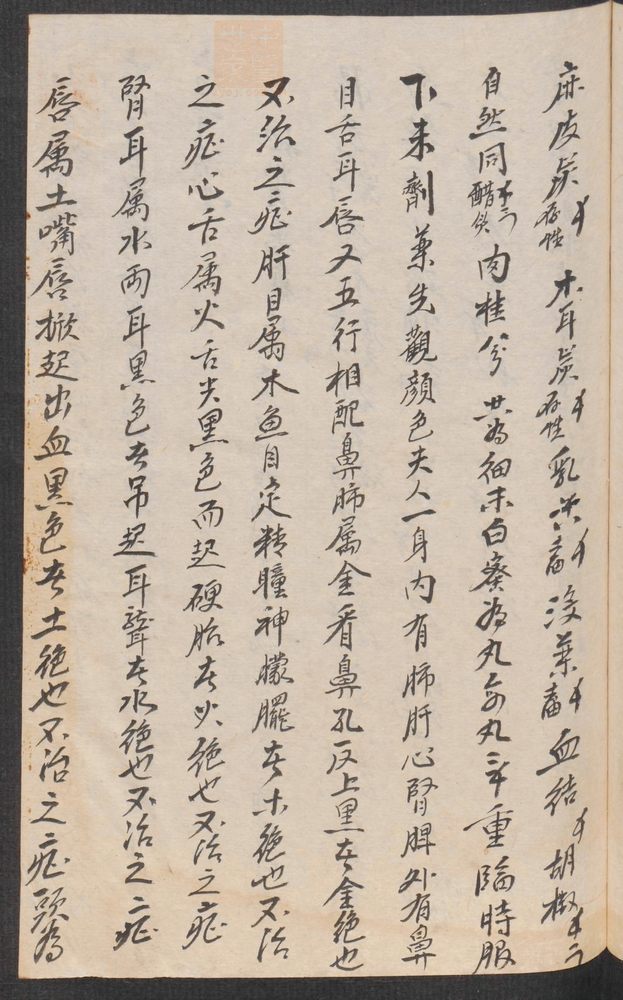 麻皮炭存性 木耳炭存性 乳香 没藥 血結 胡椒
自然同醋 肉桂 共為細末白蜜為丸每丸 重臨時服
下末劑藥先觀顔色夫人一身内有肺肝心腎脾外有鼻
目舌耳唇又五行相配鼻肺属金看鼻孔反上黑者金絶也
不治之症肝目属木魚目定精瞳神朦朧者木絶也不治
之症心舌属火舌尖黑色而起硬胎者火絶也不治之症
腎耳属水兩耳黑色者吊起耳聾者水絶也不治之症
唇属土嘴唇掀起出血黑色者土絶也不治之症頭為